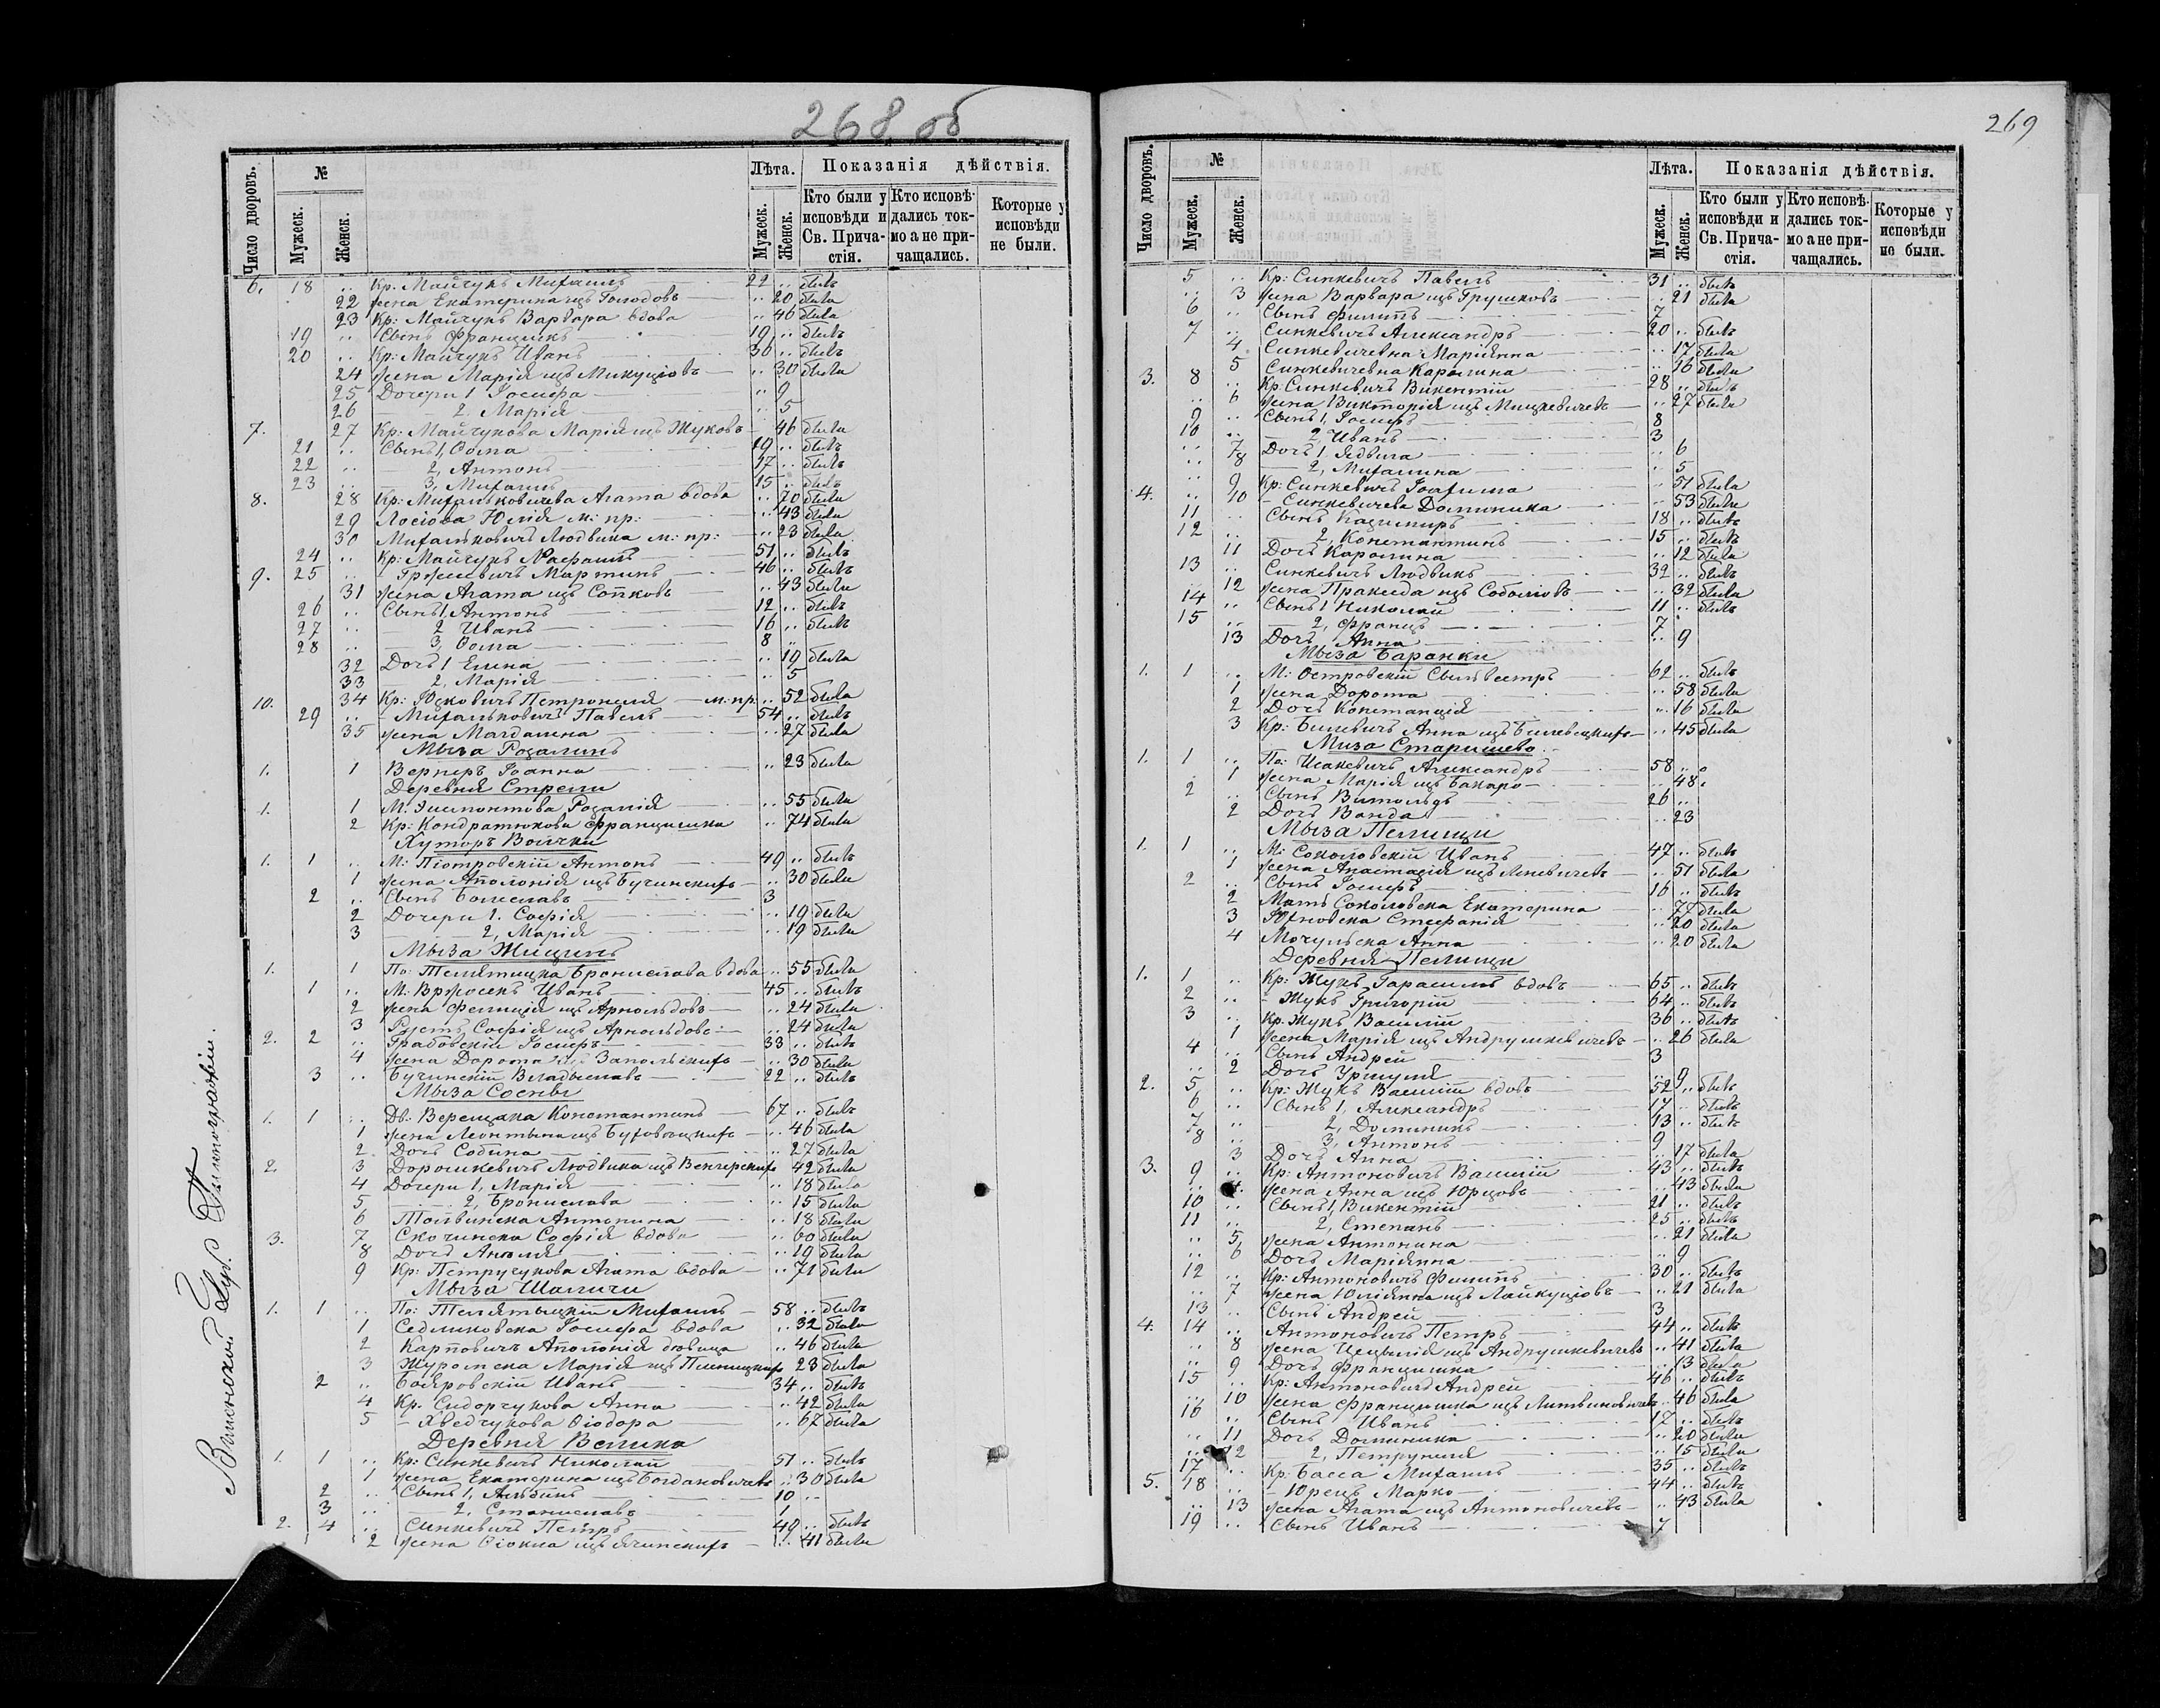 268 об
Число дворовъ. № Лѣта. Показанія дѣйствія.
Мужеск. Женск. Мужеск. Женск. Кто были у исповѣди и Св. Причастія. Кто исповѣдались токмо а не причащались. Которые у исповѣди не были.
6. 18 .. Кр. Майчукъ Михаилъ 22 .. былъ
22 жена Екатерина изъ Голодовъ .. 20 была
23 Кр: Майчукъ Варвара вдова .. 46 была
19 .. Сынъ Францишкъ 19 .. былъ
20 .. Кр: Майчукъ Иванъ 30 .. былъ
24 жена Марія изъ Микуціовъ .. 30 была
25 Дочери 1 Іосифа .. 9
26 2, Марія .. 5
7. 27 Кр: Майчукова Марія изъ Жуковъ 46 была
21 .. Сынъ 1, Ѳома 19 .. былъ
22 .. 2, Антонъ 17 .. былъ
23 .. 3, Михаилъ 15 .. былъ
8. 28 Кр: Михальковичева Агата вдова .. 70 была
29 Лосіова Юлія м: пр: .. 43 была
30 Михальковичъ Людвика м: пр: .. 23 была
24 .. Кр: Майчукъ Рафаилъ 51 .. былъ
9. 25 .. Гржесевичъ Мартинъ 46 .. былъ
31 жена Агата изъ Сопковъ .. 43 была
26 .. Сынъ 1, Антонъ 12 .. былъ
27 .. 2 Иванъ 16 .. былъ
28 .. 3, Ѳома 8 ..
32 Дочь 1 Елена .. 19 была
33 2, Марія .. 5
10. 34 Кр: Юзковичъ Петронеля м: пр. .. 52 была
29 .. - Михальковичъ Павелъ 54 .. былъ
35 жена Магдалина .. 27 была
Мыза Розалинъ
1. 1 Вернеръ Іоанна .. 23 была
Деревня Стрели
1. 1 М: Эйсмонтова Розалія .. 55 была
2 Кр: Кондратюкова Францишка .. 74 была
Хуторъ Волчки
1. 1 .. М: Піотровскій Антонъ 49 .. былъ
1 жена Аполонія изъ Бучинскихъ .. 30 была
2 .. Сынъ Болеславъ 3
2 Дочери 1. Софія .. 19 была
3 2, Марія .. 19 была
Мыза Жицинъ
1. 1 По: Телятицка Брониславa вдова .. 55 была
1 .. М: Вржосекъ Иванъ 45 .. былъ
2 жена Фелиція изъ Арнольдовъ .. 24 была
3 Софія изъ Арнольдовъ .. 24 была
2. 2 .. Грабовскій Іосифъ 33 .. былъ
4 жена Дорота изъ Запольскихъ .. 30 была
3 .. Бучинскій Владыславъ 22 .. былъ
Мыза Сосны
1. 1 .. Дв: Верещака Константинъ 67 .. былъ
1 жена Леонтына изъ Буховецкихъ .. 46 была
2 Дочь Сабина .. 27 была
2. 3 Дорошкевичъ Людвика изъ Венгерскихъ 42 была
4 Дочери 1, Марія .. 18 была
5 2, Бронислава .. 15 была
6 Толвинска Антонина .. 18 была
3. 7 Скочинска Софія вдова .. 60 была
8 Дочь Анеля .. 19 была
9 Кр: Петручукова Агата вдова .. 71 была
Мыза Шаличи
1. 1 .. По: Телятыцкій Михаилъ 58 .. былъ
1 Седликовска Іосифа вдова .. 32 была
2 Карповичъ Аполонія дѣвица .. 46 была
3 Журомска Марія изъ 23 была
2 .. Бояровскій Иванъ 34 .. былъ
4 Кр. Сидорчукова Анна .. 42 была
5 - Хведчукова Ѳіодора .. 67 была
Деревня Велика
1. 1 .. Кр: Синкевичъ Николай 51 .. былъ
1 жена Екатерина изъ Богдановичевъ .. 30 была
2 .. Сынъ 1, Альбинъ 10 ..
3 .. 2, Станиславъ 1
2. 4 .. Синкевичъ Петръ 49 .. былъ
2 жена Ѳіокла изъ .. 41 была
Виленской Губ. Типографіи.
269
Число дворовъ. № Лѣта. Показанія дѣйствія.
Мужеск. Женск. Мужеск. Женск. Кто были у исповѣди и Св. Причастія. Кто исповѣдались токмо а не причащались. Которые у исповѣди не были.
5 .. Кр: Синкевичъ Павелъ 31 .. былъ
.. 3 жена Варвара изъ Грушковъ .. 21 была
6 .. Сынъ Филипъ 7
7 .. Синкевичъ Александръ 20 .. былъ
4 Синкевичевна Маріянна .. 17 была
5 Синкевичевна Каролина .. 16 была
3. 8 .. Кр. Синкевичъ Викентій 28 .. былъ
.. 6 жена Викторія изъ Мицкевичевъ .. 27 была
9 .. Сынъ 1, Іосифъ 8
10 .. 2, Иванъ 3
.. 7 Дочь 1, Ядвига .. 6
.. 8 2, Михалина .. 5
.. 9 Кр: Синкевичъ Іоахима .. 51 была
4. .. 10 - Синкевичева Доминика .. 53 была
11 .. Сынъ Казимиръ 18 .. былъ
12 .. 2, Константинъ 15 .. былъ
11 Дочь Каролина .. 12 была
13 .. Синкевичъ Людвикъ 32 .. былъ
.. 12 жена Пракседа изъ Соболювъ .. 32 была
14 .. Сынъ 1 Николай 11 .. былъ
15 .. 2, Францъ 7
13 Дочь Анна .. 9
Мыза Баранки
1. 1 .. М: Островскій Сильвестръ 62 .. былъ
1 жена Дорота .. 58 была
2 Дочь Констанція .. 16 была
3 Кр: Билевичъ Анна изъ Билевецкихъ .. 45 была
Миза Старишево
1. 1 .. По: Исакевичъ Александръ 58 ..
1 жена Марія изъ .. 48
2 .. Сынъ Витольдъ 26 ..
2 Дочь Ванда .. 23
Мыза Пелищи
1. 1 .. М: Соколовскій Иванъ 47 .. былъ
1 жена Анастасія изъ .. 51 была
2 .. Сынъ Іосифъ 16 .. былъ
2 Мать Соколовска Екатерина .. 77 была
3 Юхновска Стефанія .. 20 была
4 Мочульска Анна .. 20 была
Деревня Пелищи
1. 1 .. Кр: Жукъ Гарасимъ вдовъ 65 .. былъ
2 .. - Жукъ Григорій 64 .. былъ
3 .. Кр. Жукъ Василій 36 .. былъ
1 жена Марія изъ Андрушкевичевъ .. 26 была
4 .. Сынъ Андрей 3
.. 2 Дочь Уршуля .. 9
2. 5 .. Кр: Жукъ Василій вдовъ 52 .. былъ
6 .. Сынъ 1, Александръ 17 .. былъ
7 .. 2, Доминикъ 13 .. былъ
8 .. 3, Антонъ 9
3 Дочь Анна .. 17 была
3. 9 .. Кр: Антоновичъ Василій 43 .. былъ
.. 4. жена Анна изъ Юрцовъ .. 43 была
10 .. Сынъ 1, Викентій 21 .. былъ
11 .. 2, Степанъ 25 .. былъ
.. 5 жена Антонина .. 21 была
.. 6 Дочь Маріянна .. 9
12 .. Кр: Антоновичъ Филипъ 30 .. былъ
.. 7 жена Юліянна изъ Лайкуціовъ .. 21 была
13 .. Сынъ Андрей 3
4. 14 .. Антоновичъ Петръ 44 .. былъ
.. 8 жена Цецылія изъ Андрушкевичевъ .. 41 была
.. 9 Дочь Францишка .. 13 была
15 .. Кр: Антоновичъ Андрей 46 .. былъ
.. 10 жена Францишка изъ Литвиновичевъ .. 46 была
16 .. Сынъ Иванъ 17 .. былъ
.. 11 Дочь Доминика .. 20 была
.. 12 2, Петрунеля .. 15 была
17 .. Кр: Басса Михаилъ 35 .. былъ
5. 18 .. - Юрецъ Марко 44 .. былъ
.. 13 жена Агата изъ Антоновичевъ .. 43 была
19 .. Сынъ Иванъ 7